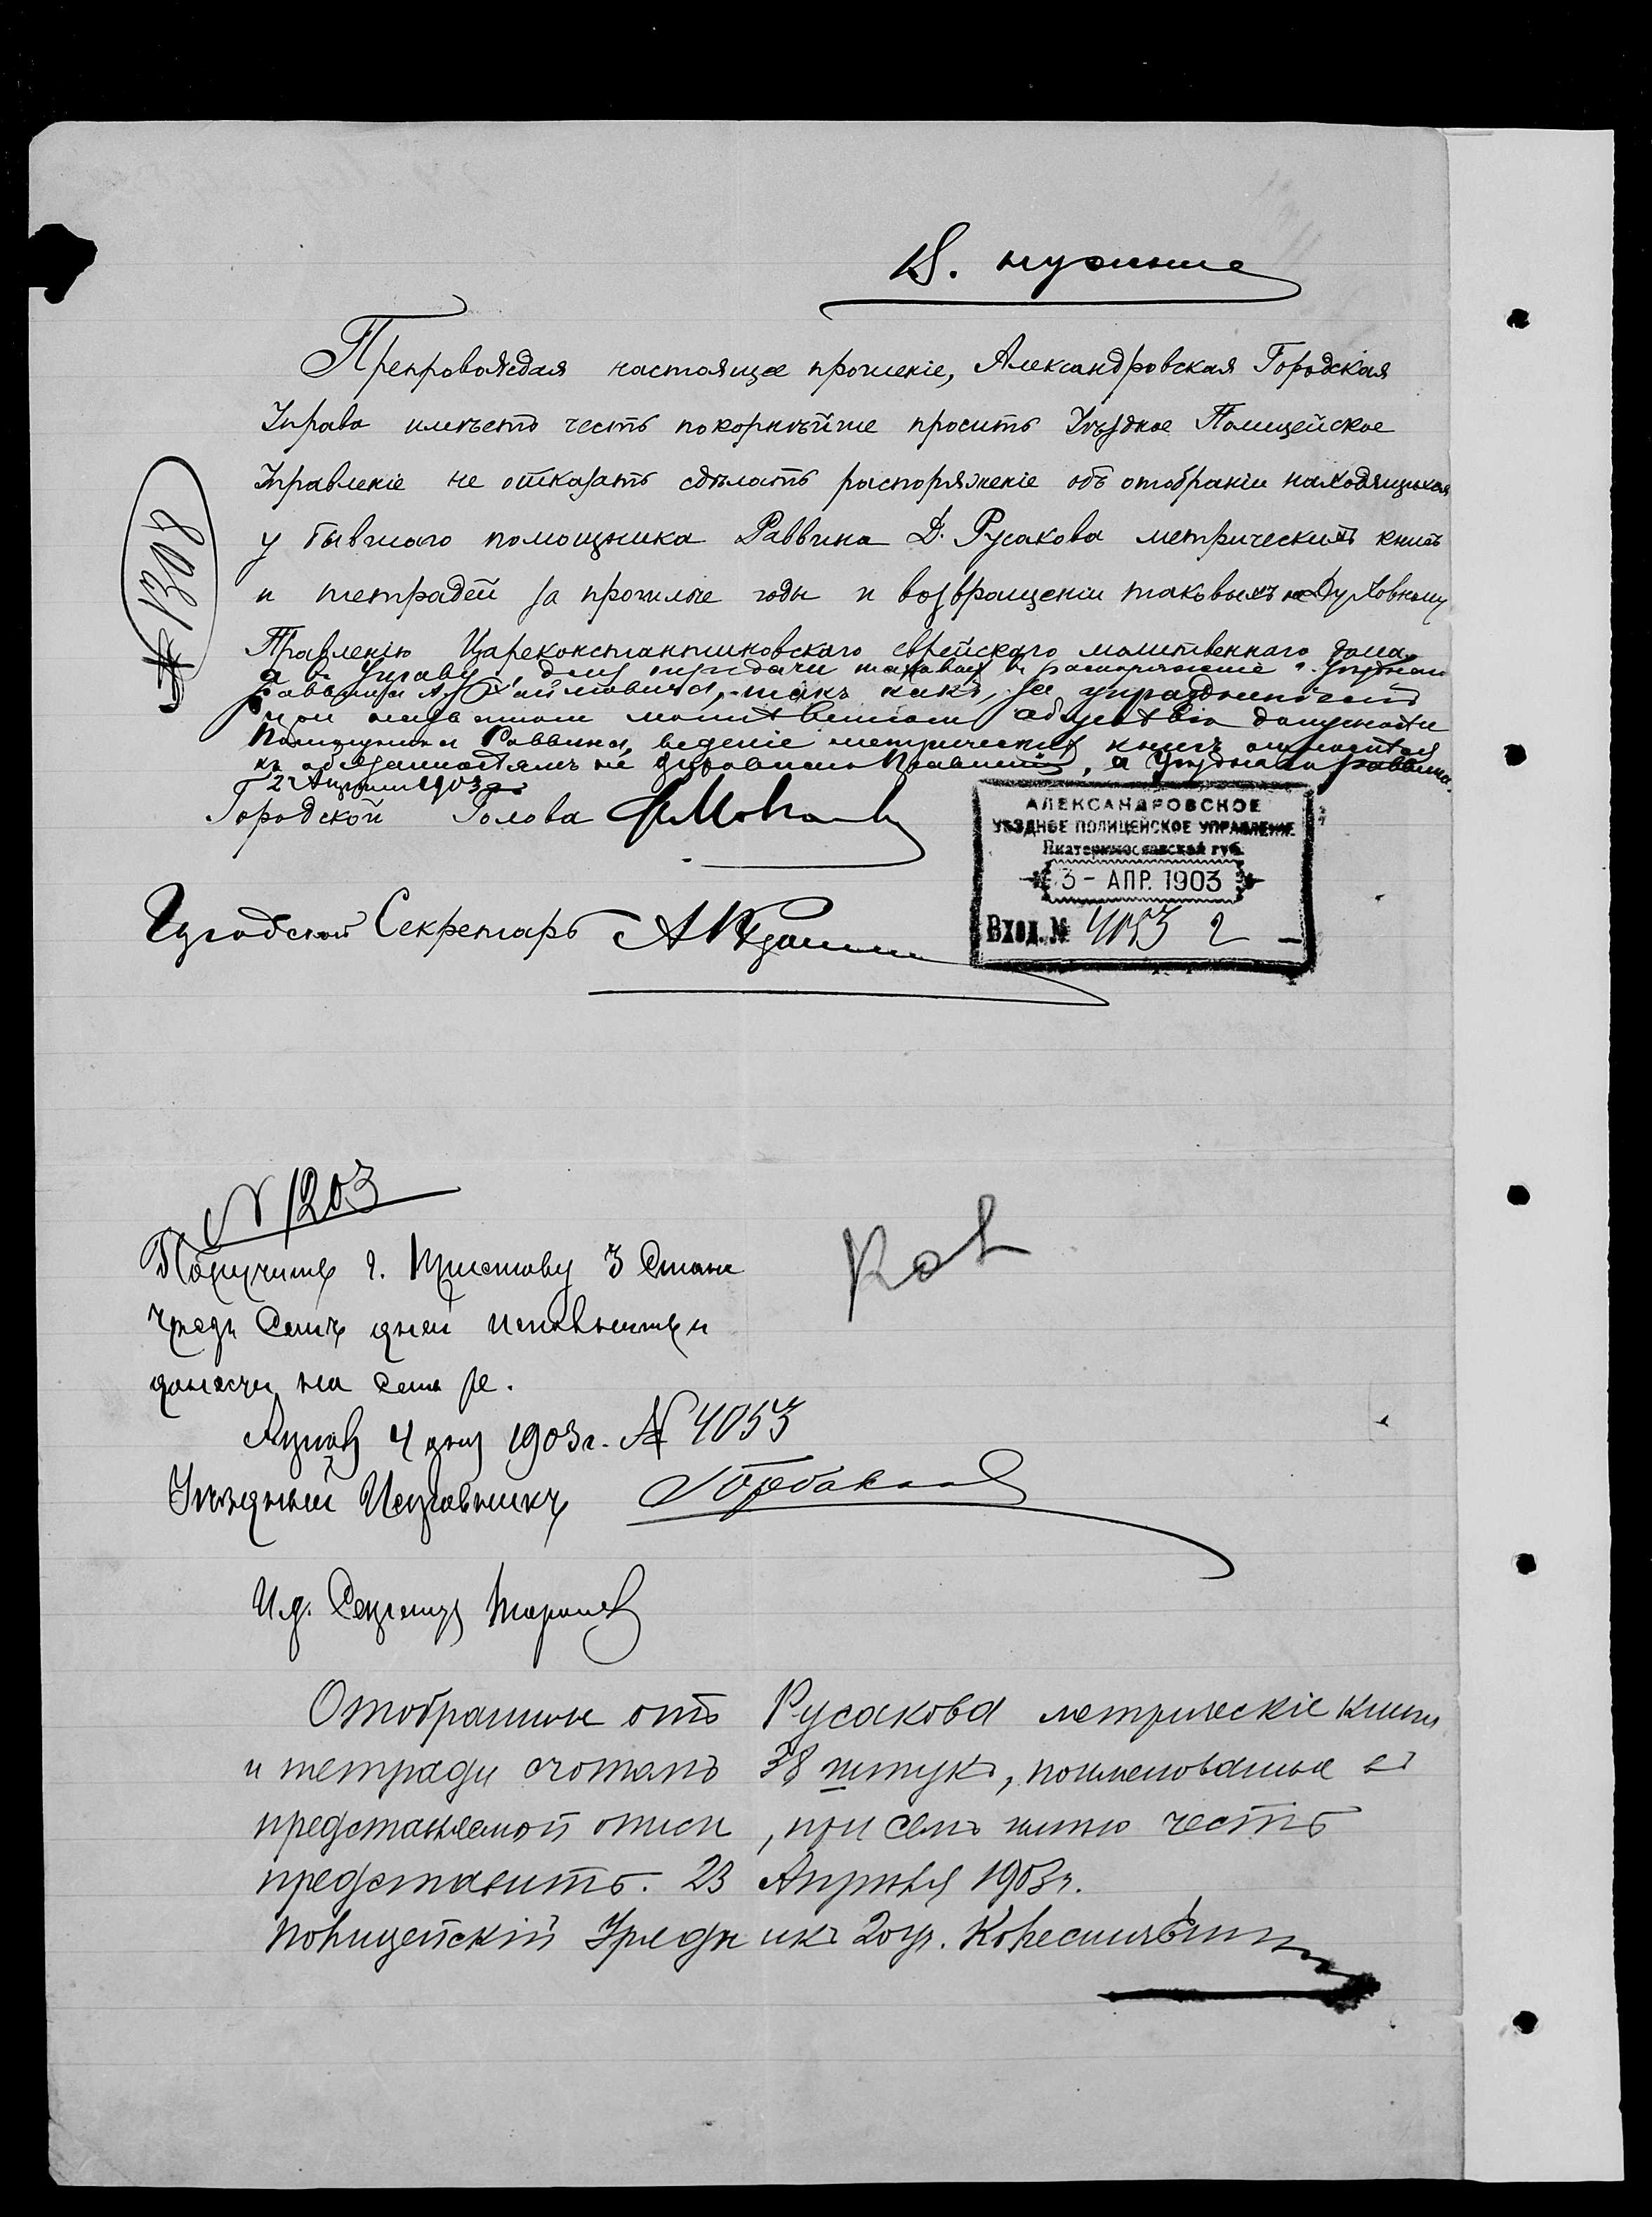 В. нужныя
Препровождая настоящее прошеніе, Александровская Городская
Управа имѣетъ честь покорнѣйше просить Уѣздное Полицейское
Управленіе не отказать сдѣлать распоряженіе объ отобраніи находящихся
у бывшаго помощника Раввина Д. Русакова метрическихъ книгъ
и тетрадей за прошлые годы и возвращеніи таковыхъ не Духовному
Правленію Цареконстантиновскаго еврейскаго молитвеннаго дома,
а въ Управу, для передачи таковыхъ въ распоряженіе Уѣзднаго
Раввина такъ какъ, за упраздненіемъ
при молитвенномъ обществѣ должности
Помощника Раввина, веденіе метрическихъ книгъ относится
къ обязанностямъ не Духовнаго Правленія, а Уѣзднаго Раввина.
2 Апрѣля 1903 г.
Городской Голова
Городской Секретарь
№ 1208
АЛЕКСАНДРОВСКОЕ
УѢЗДНОЕ ПОЛИЦЕЙСКОЕ УПРАВЛЕНІЕ
Екатеринославской губ.
3 - АПР. 1903
Вход. № 4053 2
№ 1203
Поручить г. Приставу 3 Стана
чрезъ семь дней исполнить и
донести на семъ же.
Апрѣля 4 дня 1903 г. № 4053
Уѣздный Исправникъ
И.д. Секретаря
Отобранные отъ Русакова метрическіе книги
и тетради счотомъ 38 штукъ, поименованые въ
представляемой описи, при семъ имѣю честь
представить. 23 Апрѣля 1903 г.
Полицейскій Урядникъ 2 уч.